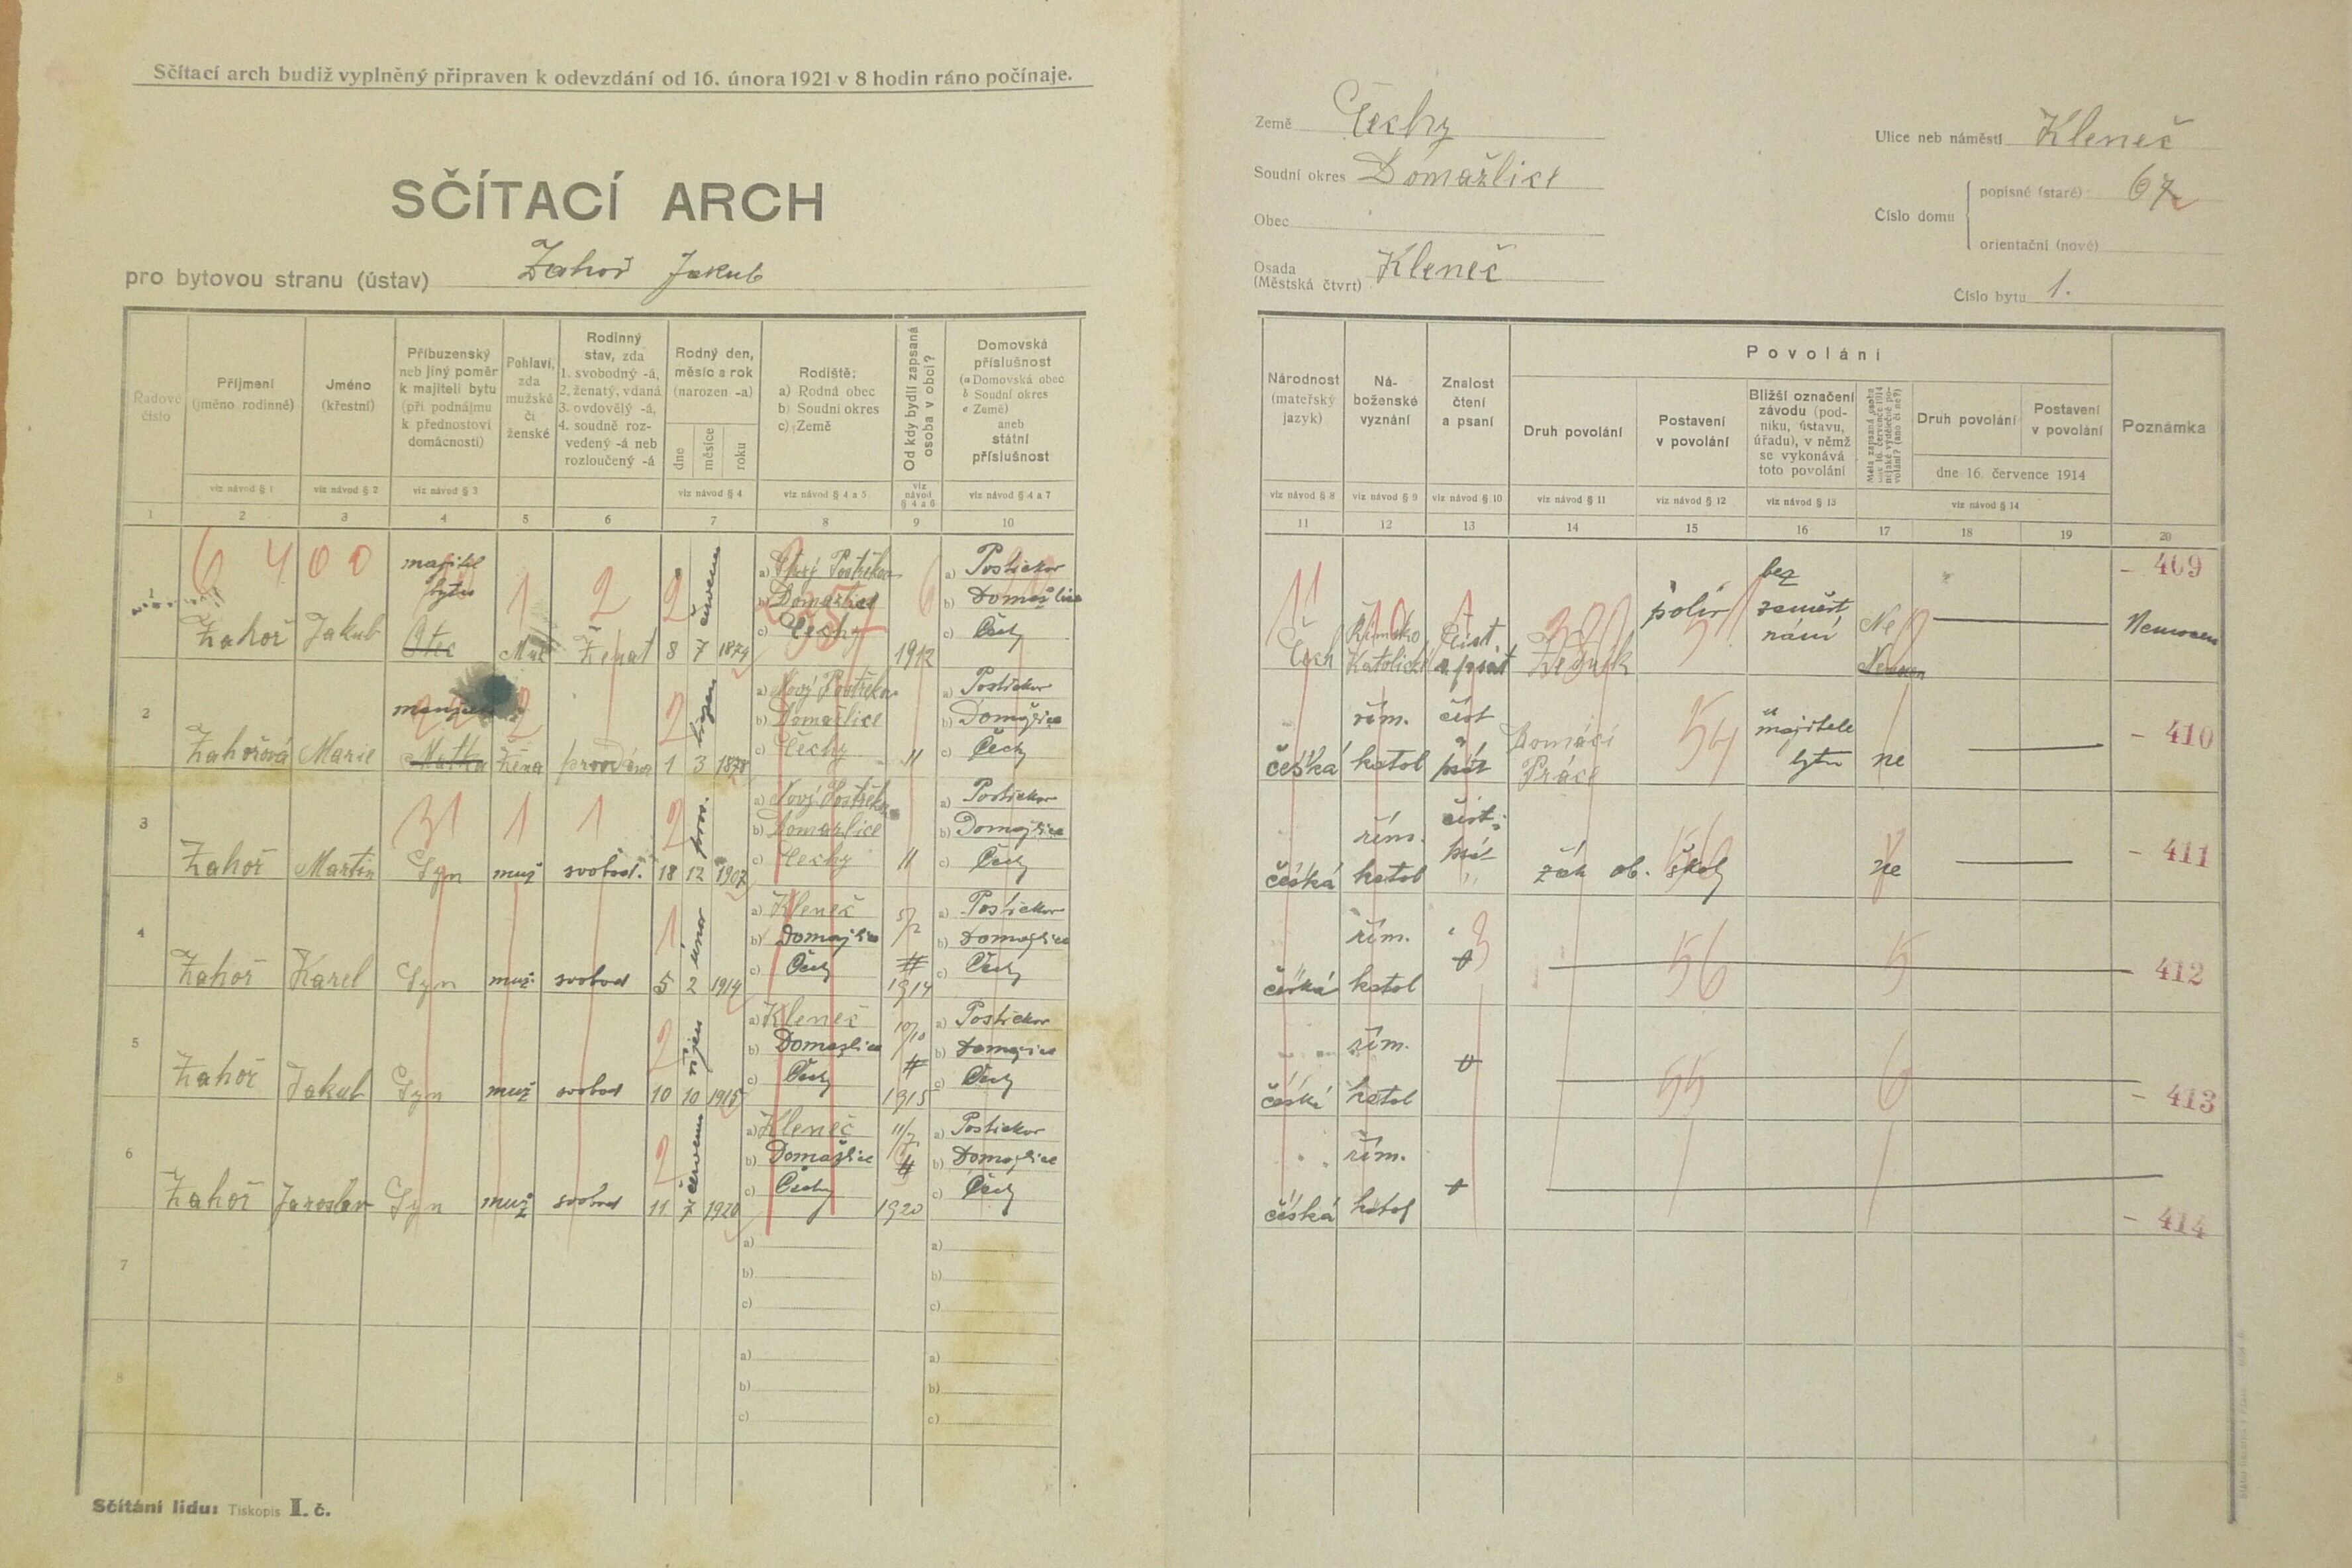 Sčítací arch budiž vyplněný připraven k odevzdání od 16. února 1921 v 8 hodin ráno počínaje.
SČÍTACÍ ARCH
pro bytovou stranu (ústav) Zahoř Jakub
Řadové číslo
Příjmení (jméno rodinné)
viz návod § 1
Jméno (křestní)
viz návod § 2
Příbuzenský neb jiný poměr k majiteli bytu (při podnájmu k přednostovi domácnosti)
viz návod § 3
Pohlaví, zda mužské či ženské
Rodinný stav, zda
1. svobodný -á,
2. ženatý, vdaná
3. ovdovělý -á,
4. soudně rozvedený -á neb rozloučený -á
Rodný den, měsíc a rok (narozen -a)
dne měsíce roku
viz návod § 4
Rodiště:
a) Rodná obec
b) Soudní okres
c) Země
viz návod § 4 a 5
Od kdy bydlí zapsaná osoba v obci?
viz návod § 4 a 6
Domovská příslušnost
(a Domovská obec
b Soudní okres
c Země)
aneb státní příslušnost
viz návod § 4 a 7
1 2 3 4 5 6 7 8 9 10
6 4 0 0
1 Zahoř Jakub majitel bytu Otec Muž Ženat 8 7 červenec 1874
a) Starý Postřekov
b) Domažlice
c) Čechy
1912
a) Postřekov
b) Domažlice
c) Čechy
2 Zahořová Marie Matka žena provdána 1 3 březen 1878
a) Nový Postřekov
b) Domažlice
c) Čechy
"
a) Postřekov
b) Domažlice
c) Čechy
3 Zahoř Martin Syn muž svobod. 18 12 pros. 1907
a) Nový Postřekov
b) Domažlice
c) Čechy
"
a) Postřekov
b) Domažlice
c) Čechy
4 Zahoř Karel Syn muž svobod 5 2 únor 1914
a) Kleneč
b) Domažlice
c) Čechy
5/2 1914
a) Postřekov
b) Domažlice
c) Čechy
5 Zahoř Jakub Syn muž svobod 10 10 říjen 1915
a) Kleneč
b) Domažlice
c) Čechy
10/10 1915
a) Postřekov
b) Domažlice
c) Čechy
6 Zahoř Jaroslav Syn muž svobod 11 7 červenec 1920
a) Kleneč
b) Domažlice
c) Čechy
11/7 1920
a) Postřekov
b) Domažlice
c) Čechy
7
a) a)
b) b)
c) c)
8
a) a)
b) b)
c) c)
Sčítání lidu: Tiskopis I. č.
Země Čechy
Soudní okres Domažlice
Obec
Osada (Městská čtvrť) Kleneč
Ulice neb náměstí Kleneč
Číslo domu
popisné (staré) 67
orientační (nové)
Číslo bytu 1.
Národnost (mateřský jazyk)
viz návod § 8
Náboženské vyznání
viz návod § 9
Znalost čtení a psaní
viz návod § 10
Povolání
Druh povolání
viz návod § 11
Postavení v povolání
viz návod § 12
Bližší označení závodu (podniku, ústavu, úřadu), v němž se vykonává toto povolání
viz návod § 13
Měla zapsaná osoba dne 16. července 1914 nějaké výdělečné povolání? (ano či ne?)
Druh povolání
Postavení v povolání
dne 16. července 1914
viz návod § 14
Poznámka
11 12 13 14 15 16 17 18 19 20
Čech Římsko Katolické Číst a psát Zedník polír bez zaměstnání Ne - 409
česká řím. katol číst a psát Domácí Práce majitele bytu ne - 410
česká řím. katol číst psát žák ob. školy ne - 411
česká řím. katol 412
česká řím. katol - 413
česká řím. katol - 414